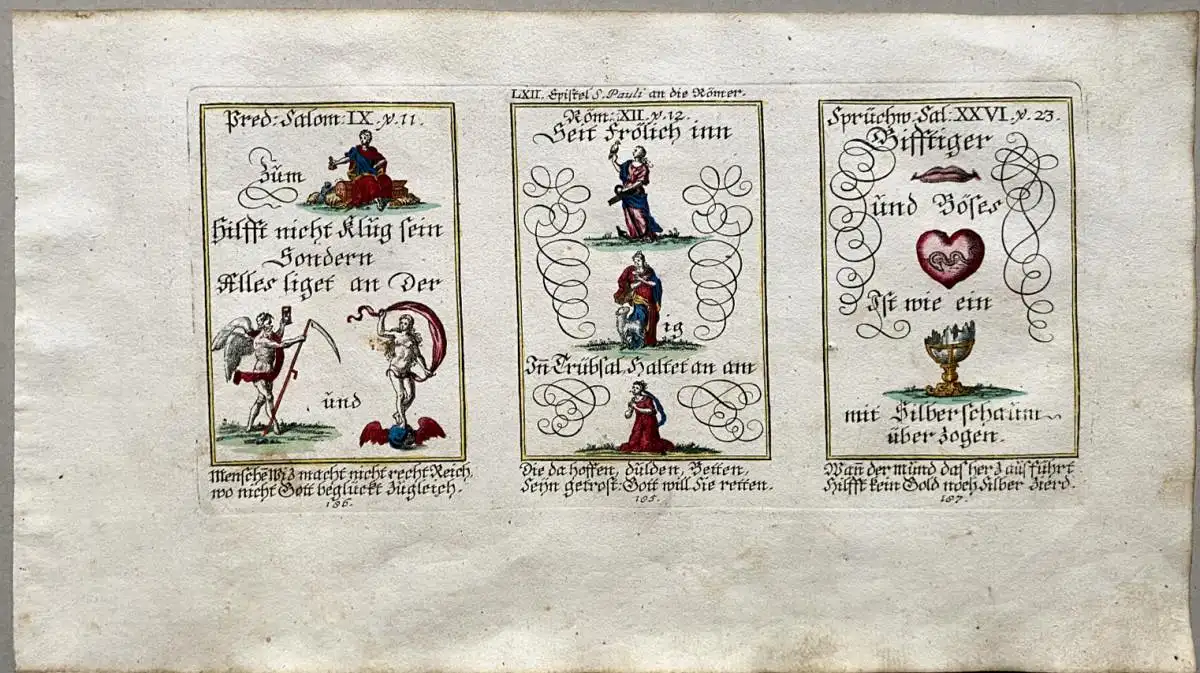 LXII. Epistel S. Pauli an die Römer.
Pred: Salom: IX. v. 11.
Züm
Hilfft nicht Klüg sein
Sondern
Alles liget an Der
ünd
Menschē Witz macht nicht recht Reich,
wo nicht Gott beglückt Zügleich.
186.
Röm: XII. v. 12.
Seit Frölich inn
ig
In̄ Trübsal, Haltet an am
Die da hoffen, dülden, Betten,
Seÿn getrost: Gott will Sie retten.
185.
Sprüchw. Sal: XXVI. v. 23.
Gifftiger
ünd Böses
Ist wie ein
mit Silberschaüm
über zogen.
Wan̄ der münd das herz ausführt
Hilfft kein Gold noch Silber Zierd.
187.